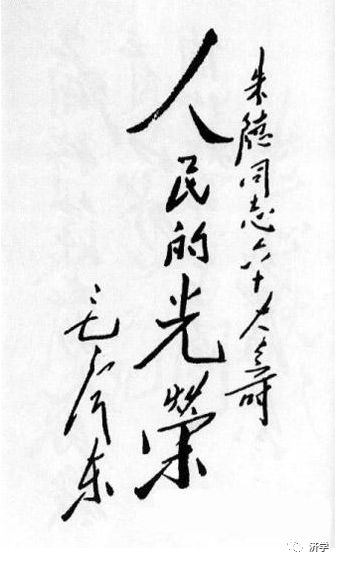 朱德同志六十大寿
人民的光榮
毛泽东
济学